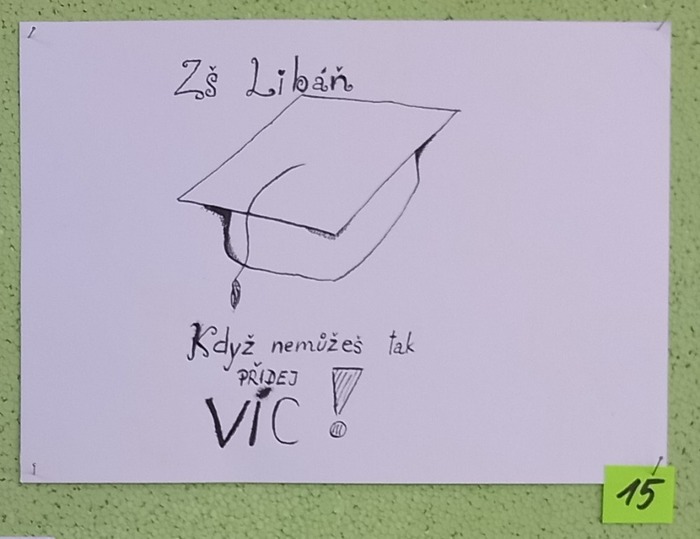 Zš Libáň
Když nemůžeš tak
PŘIDEJ
VÍC !
15